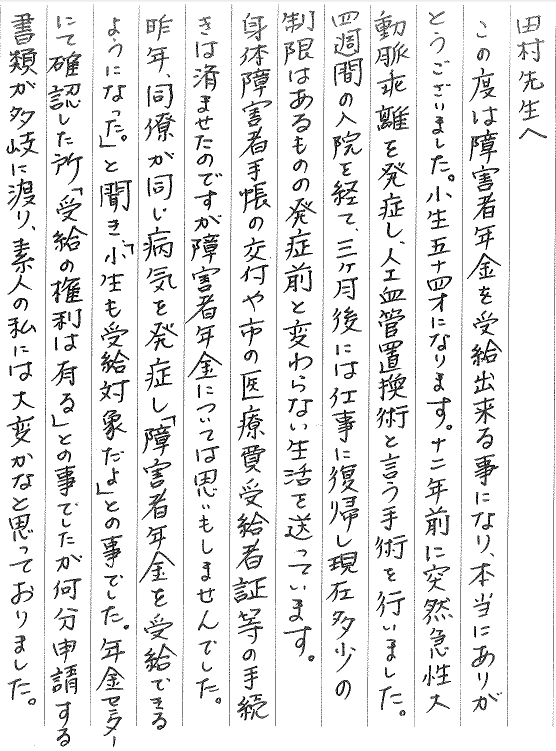 田村先生へ
この度は障害者年金を受給出来る事になり、本当にありが
とうございました。小生五十四才になります。十二年前に突然急性大
動脈乖離を発症し、人工血管置換術と言う手術を行いました。
四週間の入院を経て、三ヶ月後には仕事に復帰し現在多少の
制限はあるものの発症前と変わらない生活を送っています。
身体障害者手帳の交付や市の医療費受給者証等の手続
きは済ませたのですが障害者年金については思いもしませんでした。
昨年、同僚が同じ病気を発症し「障害者年金を受給できる
ようになった。」と聞き、「小生も受給対象だよ」との事でした。年金センター
にて確認した所「受給の権利は有る」との事でしたが何分申請する
書類が多岐に渡り、素人の私には大変かなと思っておりました。